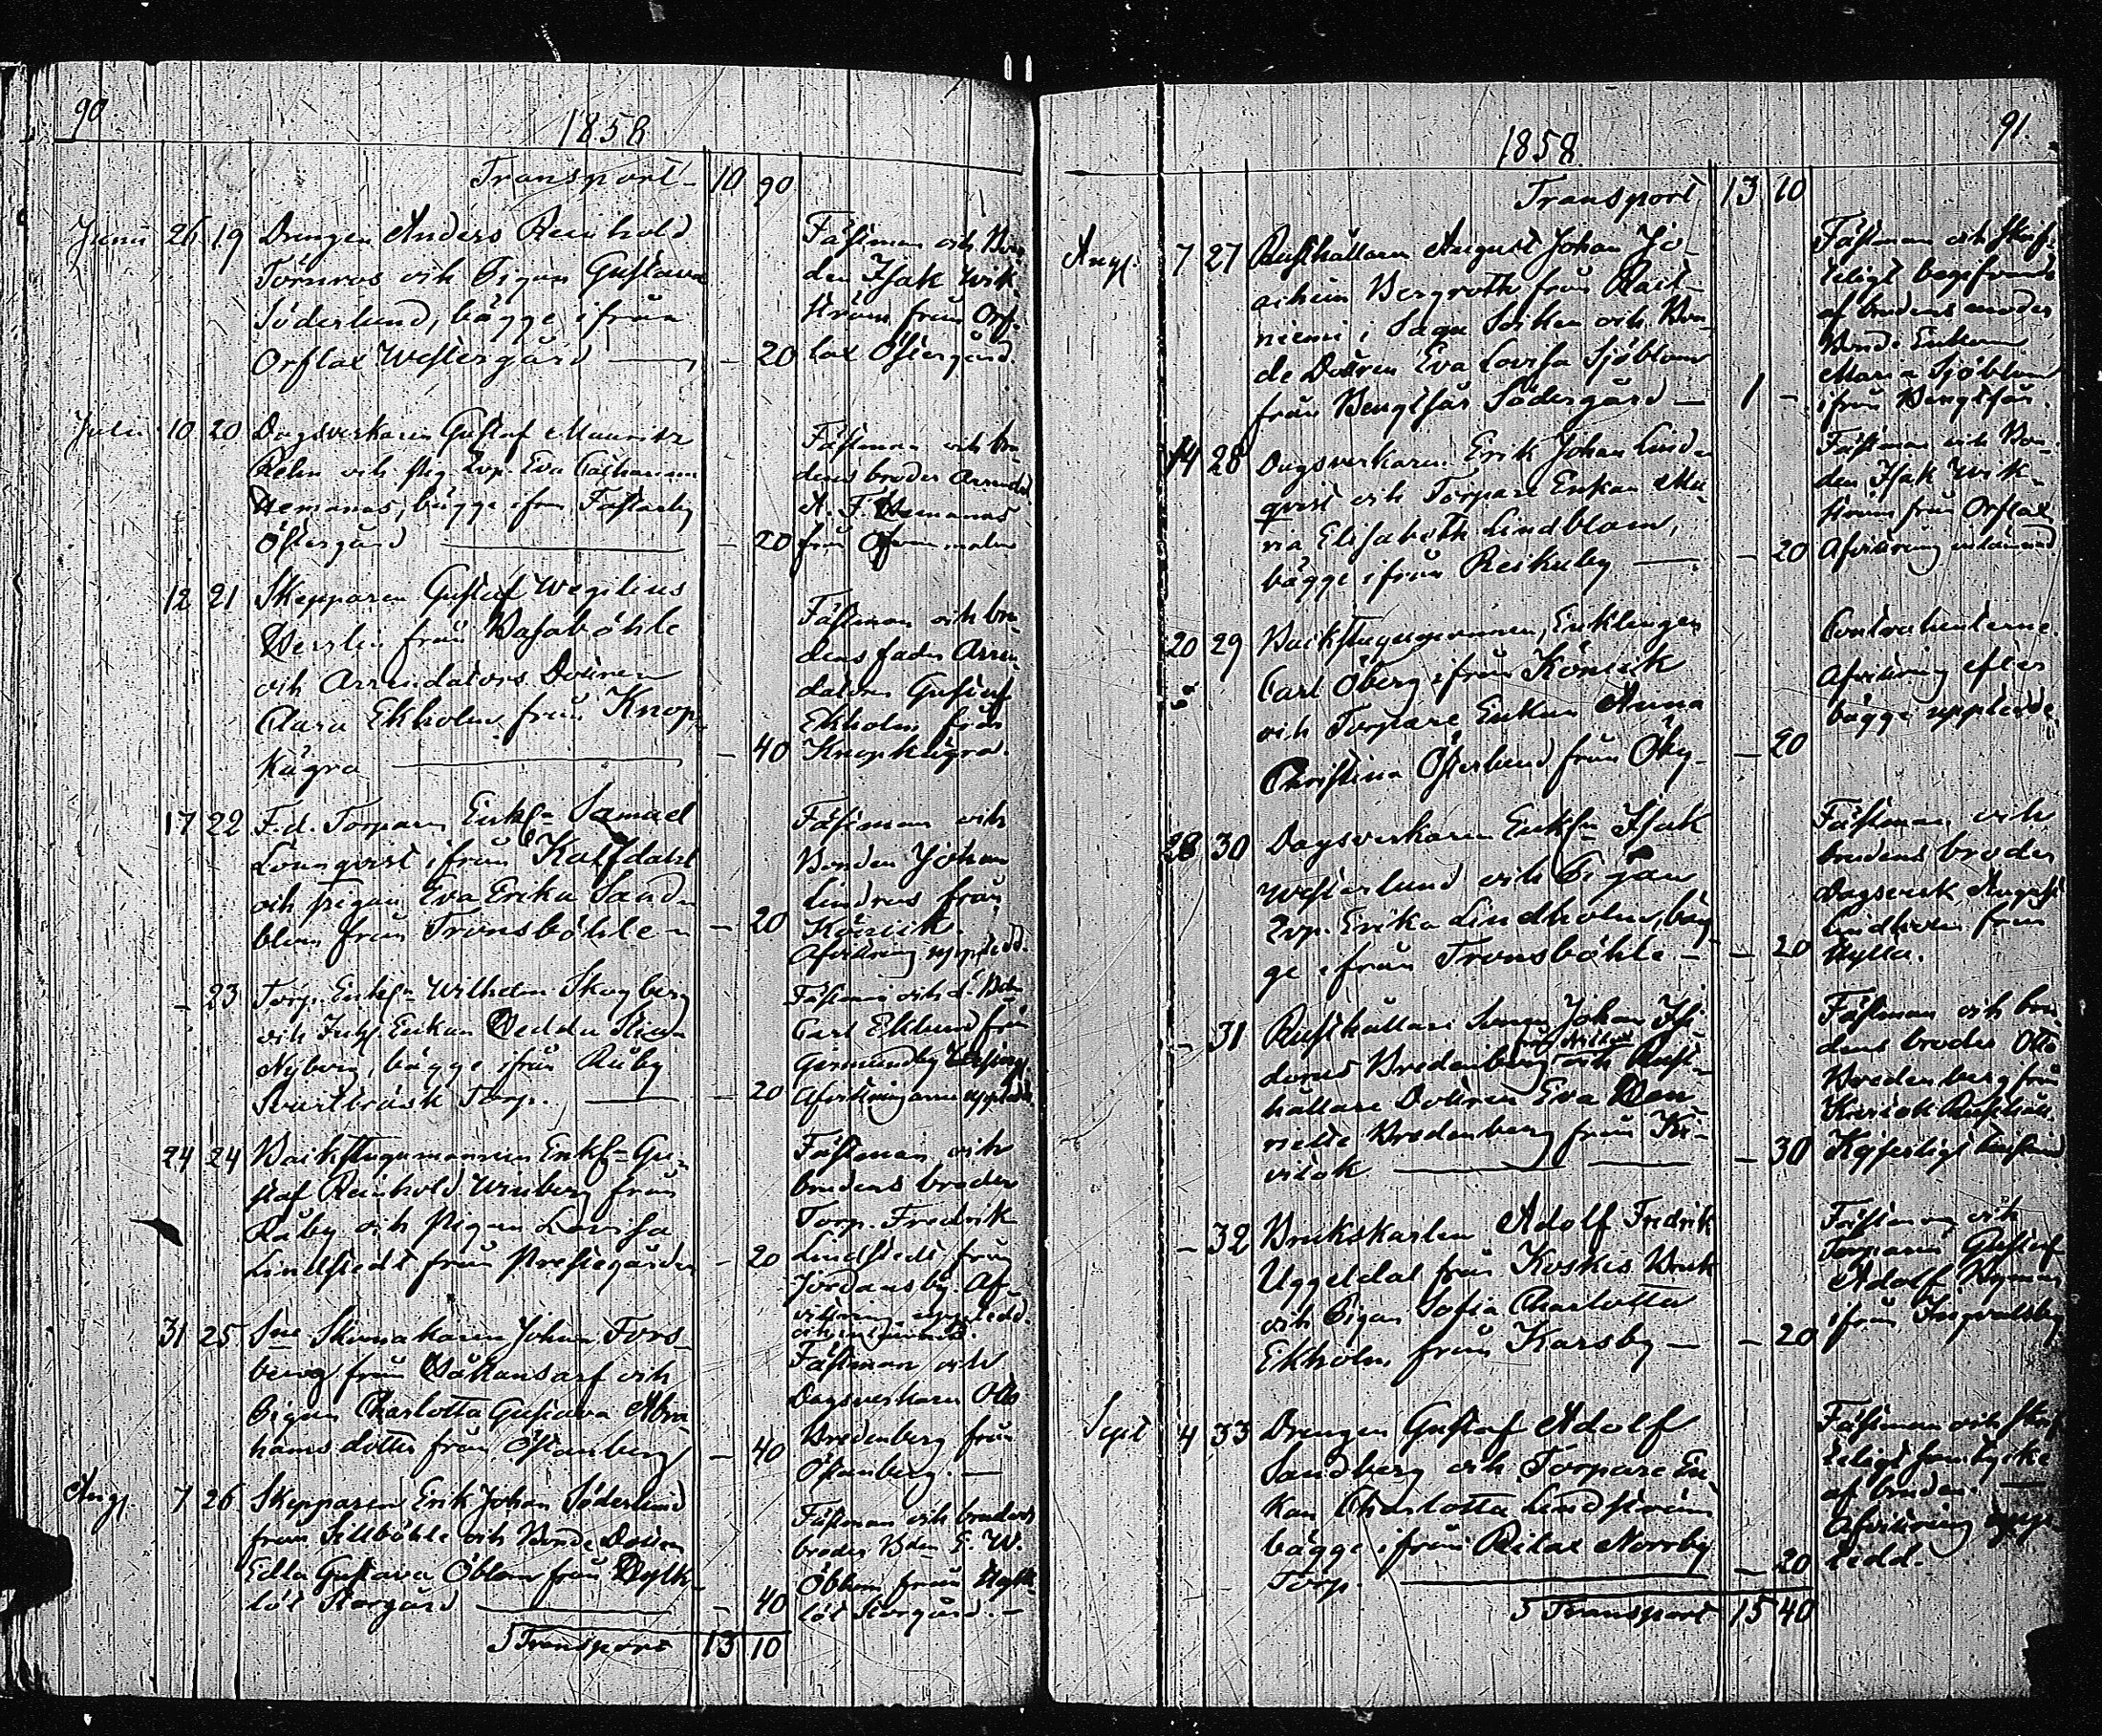 90
1858
Transport - 10 90
Junii 26 19 Drengen Anders Reinhold
Törnros och Pigan Gustava
Söderlund, bägge ifrån
Orslax Westergård — - 20
Fästman och Bon
den Isak Wik
ström från Ors
lax Östergård.
Julii 10 20 Dagsverkaren Gustaf Mauritz
Rehn och pig. Eva Catharina
bägge ifrån
Östergård — - 20
Fästman och bru
dens broder
A. F.
från
12 21 Skepparen Gustaf Wegelius
från Wasaböhle
och Arrendators Dottren
Clara Ekholm från Knop
kägra — - 40
Fästman och bru
dens fader Arren
datorn Gustaf
Ekholm från
Knopkägra.
17 22 F.d. Torparen Enkl:n Samuel
Lönnqvist ifrån Kalfdahl
och pigan Eva Erika Sand
blom från Tronsböhle - - 20
Fästman och
Bonden Johan
Lindros från
Köivik.
Afvittring uppvisdd.
- 23 Torp. Enkl:n Wilhelm Skogberg
och Enkan Hedda Stina
Nyberg, bägge ifrån Råby
Svartträsk Torp. — - 20
Fästman och
Carl Eklund från
Germundby
24 24 Backstugumannen Enkl:n Gu
staf Reinhold Winberg från
Råby och Pigan Lovisa
Lindstedt från Prestegården - 20
Fästman och
brudens broder
Torp. Fredrik
Lindstedt från
Jordansby. Af
vittring
31 25 Sne Skomakaren Johan Fors
berg från Håkansarf och
Pigan Charlotta Gustava Abra
hamsdotter från Östanberg - 40
Fästman och
Dagsverkaren Otto
Bredenberg från
Östanberg. —
Aug. 7 26 Skepparen Erik Johan Söderlund
från Sillböhle och Bonde Dottren
Edla Gustava Öblom från
Storgård — - 40
Fästman och brudens
broder Bdn G. W.
Öblom från
Storgård. -
Transport 13 10
91
1858
Transport 13 10
Aug. 7 27 Rusthållaren August Johan Jo
achim Bergroth från Rait
niemi i Sagu Socken och Bon
de Dottren Eva Lovisa Sjöblom
från Bengtsår Södergård — 1 -
Fästman och skrif
teligt begifvande
af brudens moder
Bonde Enkan
Maria Sjöblom
ifrån Bengtsår.
14 28 Dagsverkaren Erik Johan Lind
qvist och Torpare Enkan Ma
ria Elisabeth Lindblom,
bägge ifrån Reikuby — - 20
Fästman och Bon
den Isak Wik
ström från Orslax
Afvittring inlämnad
20 29 Backstugumannen, Enklingen
Carl Öberg ifrån Köivik
och Torpare Enkan Anna
Christina Österlund från Öby - - 20
Contrahenterne.
Afvittring efter
bägge uppvisde.
28 30 Dagsverkaren Enkl:n Isak
Westerlund och Pigan
Erika Lindholm, bäg
ge ifrån Tronsböhle - - 20
Fästman och
brudens broder
Dagsverk. August
Lindholm från
- 31 Rusthållare Sonen Johan Isi
dorus Bredenberg och Rust
hållare Dottren Eva Hen
riette Bredenberg från Ki
vitok — - 30
Fästman och bru
dens broder Otto
Bredenberg från
Kivitok
- 32 Brukskarlen Adolf Fredrik
Uggeldal från Koskis Bruk
och Pigan Sofia Charlotta
Ekholm från Karsby - - 20
Fästman och
Torparen Gustaf
Adolf Nyman
ifrån Ingvaldsby
Sept 4 33 Drengen Gustaf Adolf
Sandberg och Torpare En
kan Charlotta Lindström
bägge ifrån Rilax Norrby
Torp. — - 20
Fästman och skrif
teligt samtycke
af bruden. —
Afvittring upp
tedd.
Transport 15 40